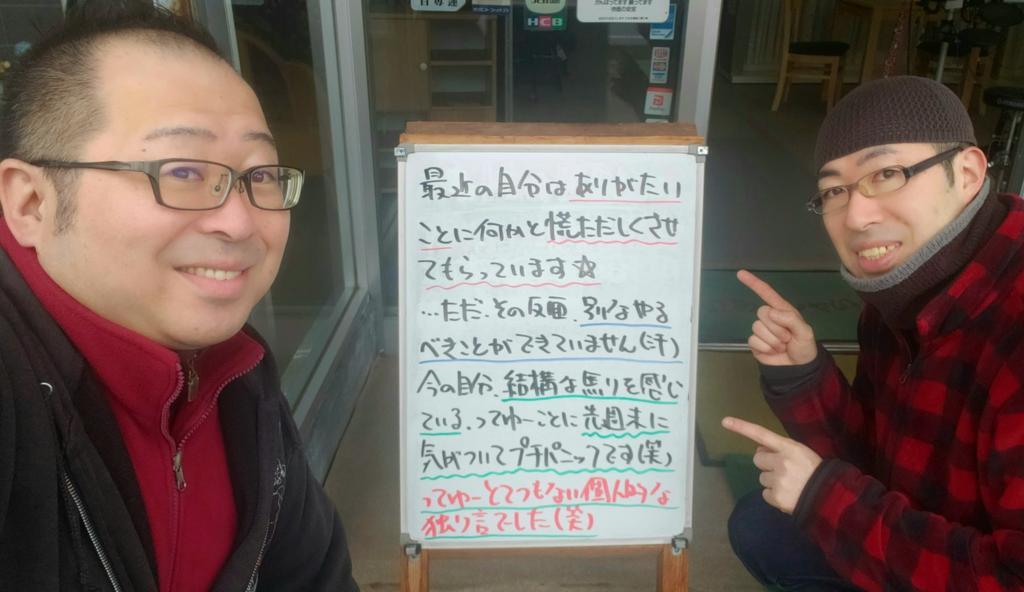 日専連
HCB
PayPay
最近の自分はありがたい
ことに何かと慌ただしくさせ
てもらっています☆
…ただ、その反面、別なやる
べきことができていません(汗)
今の自分、結構な焦りを感じ
ている、ってゆーことに先週末に
気がついてプチパニックです(笑)
ってゆーとてつもない個人的な
独り言でした(笑)